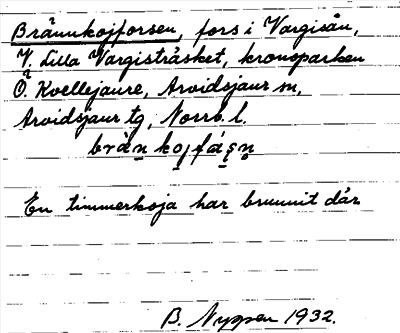 Brännkojforsen, fors i Vargisån,
V. Lilla Vargisträsket, kronoparken
Ö. Kvellejaure, Arvidsjaur sn,
Arvidsjaur tg, Norrb. l.
En timmerkoja har brunnit där
B. Nyppen 1932.